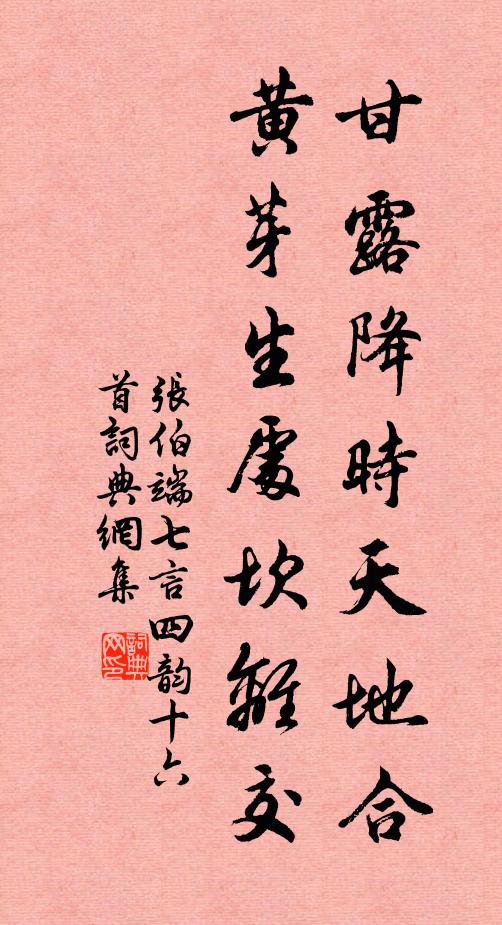 甘露降時天地合
黃芽生處坎離交
張伯端七言四韵十六
首詞典網集
詞典
网印